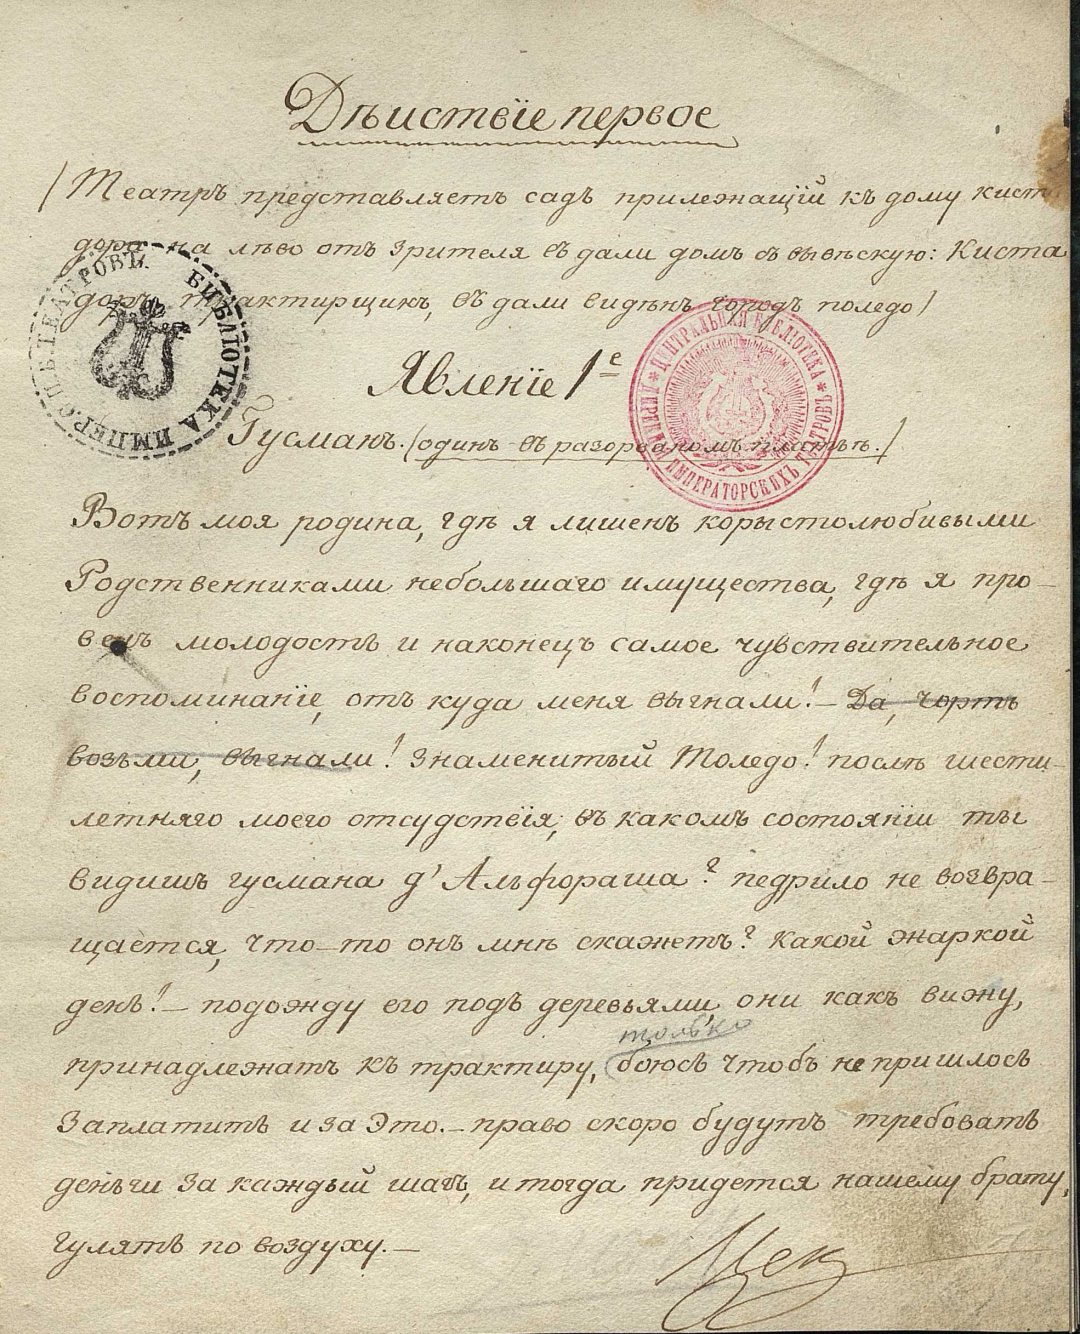 Дѣиствіе первое
(Театръ представляетъ садъ прилежащій къ дому кист
дора на лѣво отъ зрителя въ дали домъ съ вывѣскую: Киста
доръ трактирщикъ, въ дали видѣнъ городъ поледо)
БИБЛІОТЕКА ИМПЕР. С.П.Б. ТЕАТРОВЪ.
Явленіе 1е
ЦЕНТРАЛЬНАЯ БИБЛІОТЕКА
ИМПЕРАТОРСКИХЪ ТЕАТРОВЪ
Гусманъ. (одинъ въ разорваномъ платьѣ.)
Вотъ моя родина, гдѣ я лишенъ корыстолюбивыми
Родственниками небольшаго имущества, гдѣ я про-
велъ молодость и наконецъ самое чувствительное
воспоминаніе, отъ куда меня выгнали! - Да, чортъ
возьми, выгнали! Знаменитый Толедо! послѣ шести-
летняго моего отсудствія, въ какомъ состояніи ты
видишь гусмана д' Альфораша? педрило не возвра-
щается, что-то онъ мнѣ скажетъ? Какой жаркой
день! - подожду его подъ деревьями, они какъ вижу,
только
принадлежатъ къ трактиру, боюсь чтобъ не пришлось
Заплатить и за Это. - право скоро будутъ требовать
деньги за каждый шагъ, и тогда придется нашему брату,
гулять по воздуху. -